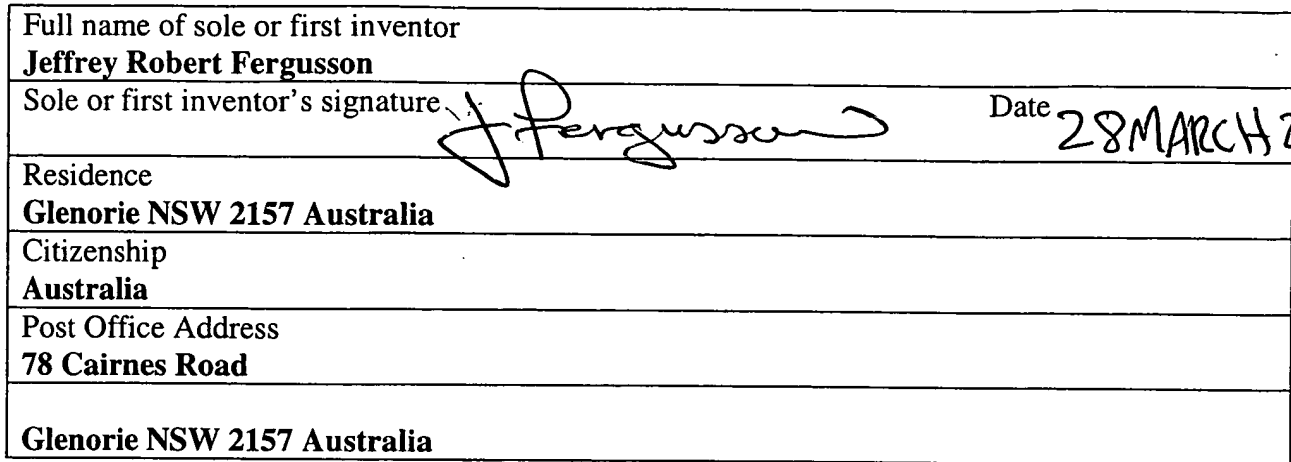 Full name of sole or first inventor
Jeffrey Robert Fergusson
Sole or first inventor's signature J Fergusson Date 28 MARCH 2
Residence
Glenorie NSW 2157 Australia
Citizenship
Australia
Post Office Address
78 Cairnes Road
Glenorie NSW 2157 Australia